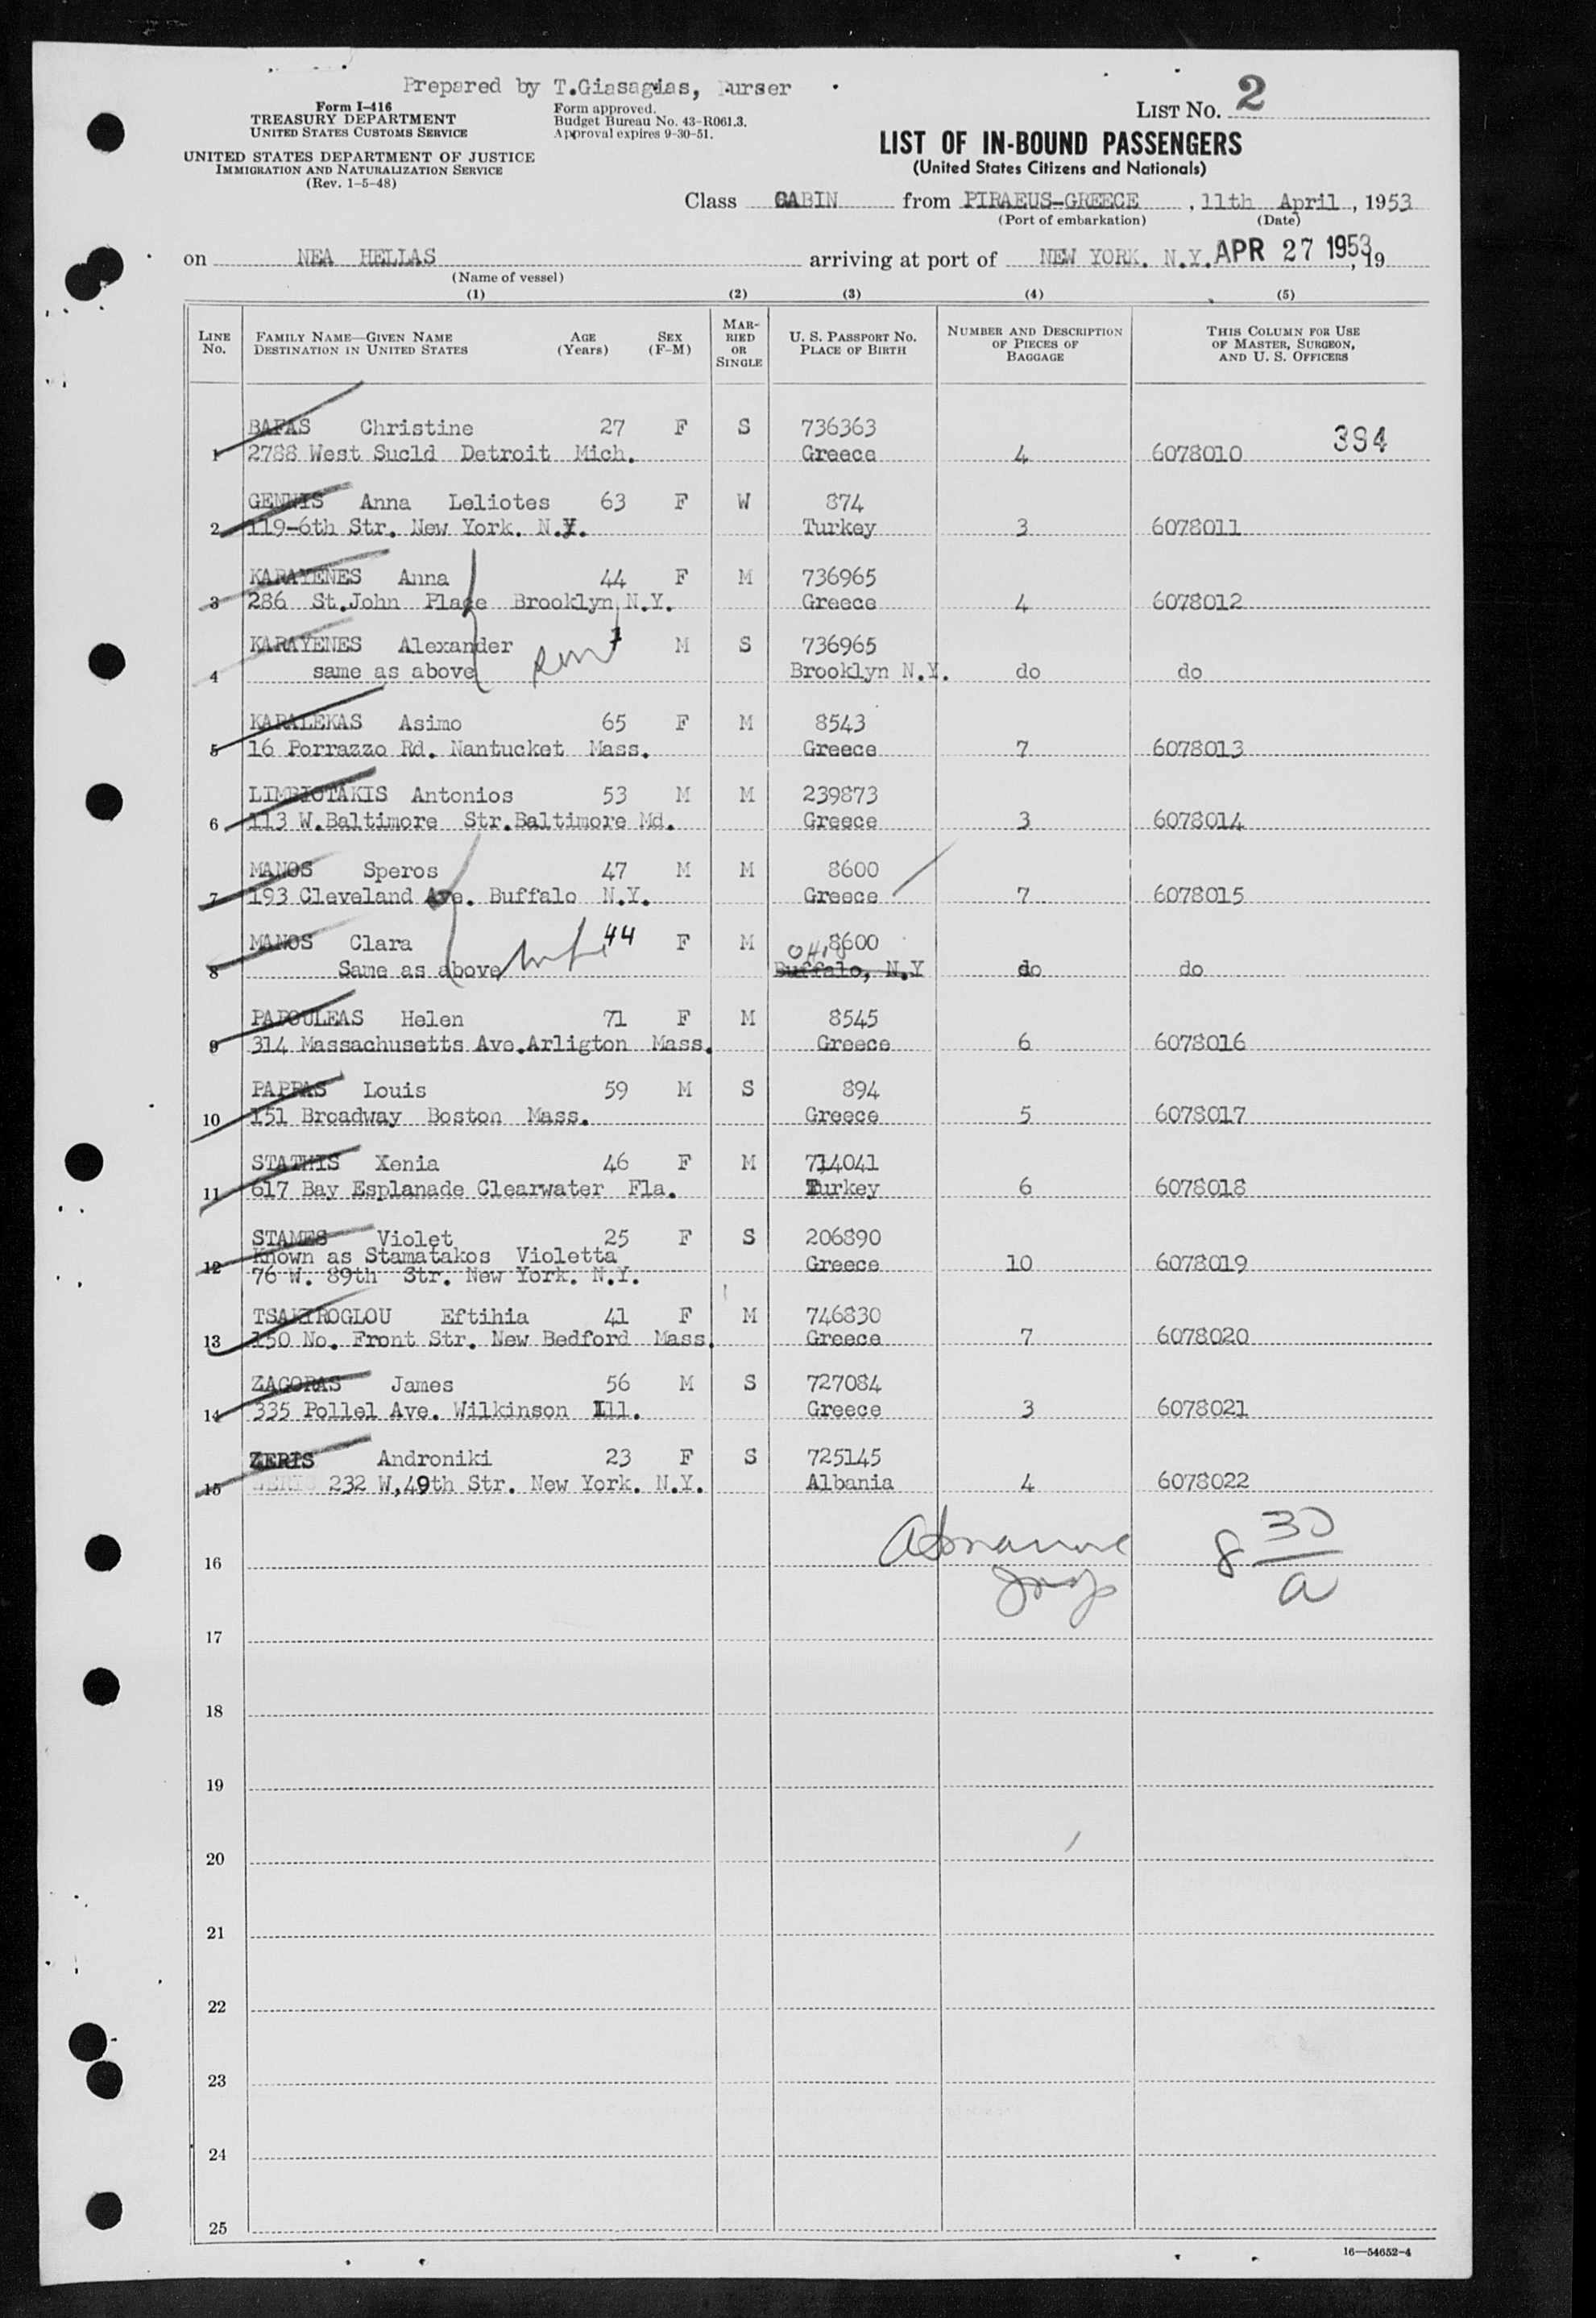 Prepared by T.Giasagias, Purser
Form I-416
TREASURY DEPARTMENT
UNITED STATES CUSTOMS SERVICE
Form approved.
Budget Bureau No. 43-R061.3.
Approval expires 9-30-51.
LIST No. 2
UNITED STATES DEPARTMENT OF JUSTICE
IMMIGRATION AND NATURALIZATION SERVICE
(Rev. 1-5-48)
LIST OF IN-BOUND PASSENGERS
(United States Citizens and Nationals)
Class CABIN from PIRAEUS-GREECE, 11th April, 1953
(Port of embarkation) (Date)
on NEA HELLAS arriving at port of NEW YORK. N.Y. APR 27 1953, 19
(Name of vessel)
(1) (2) (3) (4) (5)
LINE No. FAMILY NAME—GIVEN NAME DESTINATION IN UNITED STATES AGE (Years) SEX (F-M) MARRIED OR SINGLE U. S. PASSPORT NO. PLACE OF BIRTH NUMBER AND DESCRIPTION OF PIECES OF BAGGAGE THIS COLUMN FOR USE OF MASTER, SURGEON, AND U. S. OFFICERS
BAFAS Christine 27 F S 736363 394
1 2788 West Sucld Detroit Mich. Greece 4 6078010
GENNIS Anna Leliotes 63 F W 874
2 119-6th Str. New York. N.Y. Turkey 3 6078011
KARAYENES Anna 44 F M 736965
3 286 St.John Place Brooklyn N.Y. Greece 4 6078012
KARAYENES Alexander 7 M S 736965
4 same as above son Brooklyn N.Y. do do
KARALEKAS Asimo 65 F M 8543
5 16 Porrazzo Rd. Nantucket Mass. Greece 7 6078013
LIMBIOTAKIS Antonios 53 M M 239873
6 113 W.Baltimore Str.Baltimore Md. Greece 3 6078014
MANOS Speros 47 M M 8600
7 193 Cleveland Ave. Buffalo N.Y. Greece 7 6078015
MANOS Clara 44 F M 8600
8 Same as above wife Buffalo, N.Y Ohio do do
PAPOULEAS Helen 71 F M 8545
9 314 Massachusetts Ave.Arligton Mass. Greece 6 6078016
PAPPAS Louis 59 M S 894
10 151 Broadway Boston Mass. Greece 5 6078017
STATHIS Xenia 46 F M 714041
11 617 Bay Esplanade Clearwater Fla. Turkey 6 6078018
STAMES Violet 25 F S 206890
Known as Stamatakos Violetta
12 76 W. 89th Str. New York. N.Y. Greece 10 6078019
TSAKYROGLOU Eftihia 41 F M 746830
13 150 No. Front Str. New Bedford Mass. Greece 7 6078020
ZAGORAS James 56 M S 727084
14 335 Pollel Ave. Wilkinson Ill. Greece 3 6078021
ZERIS Androniki 23 F S 725145
15 232 W,49th Str. New York. N.Y. Albania 4 6078022
16 8 30/a
17
18
19
20
21
22
23
24
25
16—54652-4